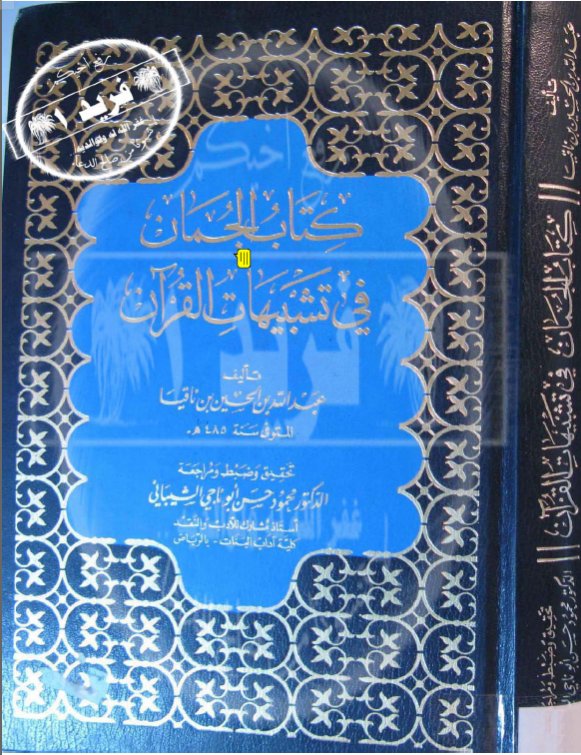 كِتَابُ الْجُمَان
في تَشْبِيهَاتِ الْقُرْآن
تأليف
عبد الله بن الحسين بن ناقيا
المتوفى سنة ٤٨٥ هـ.
تحقيق وضبط ومراجعة
الدكتور محمود حسن أبو ناجي الشيباني
أستاذ مشارك للأدب والنقد
كلية آداب البنات - بالرياض
رفع أخيكم
فريد ١
غفر الله له ولوالديه
تأليف
كتاب الجمان في تشبيهات القرآن
تحقيق وضبط ومراجعة